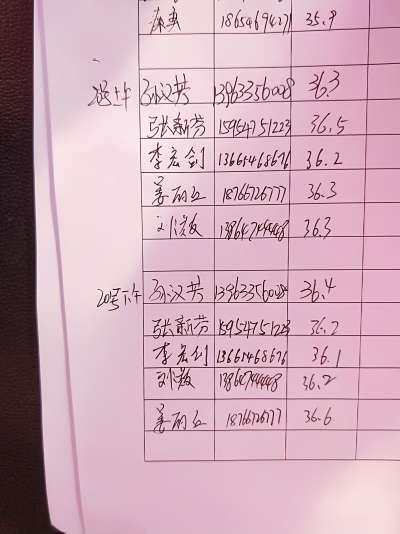 18654694271 35.9
上午 孙汉芸 13963356028 36.3
张新芬 15954751223 36.5
李宏剑 13661468676 36.2
姜丽红 18766726777 36.3
13864744448 36.3
20号下午 孙汉芸 13963356028 36.4
张新芬 15954751223 36.2
李宏剑 13661468676 36.1
13864744448 36.2
姜丽红 18766726777 36.6